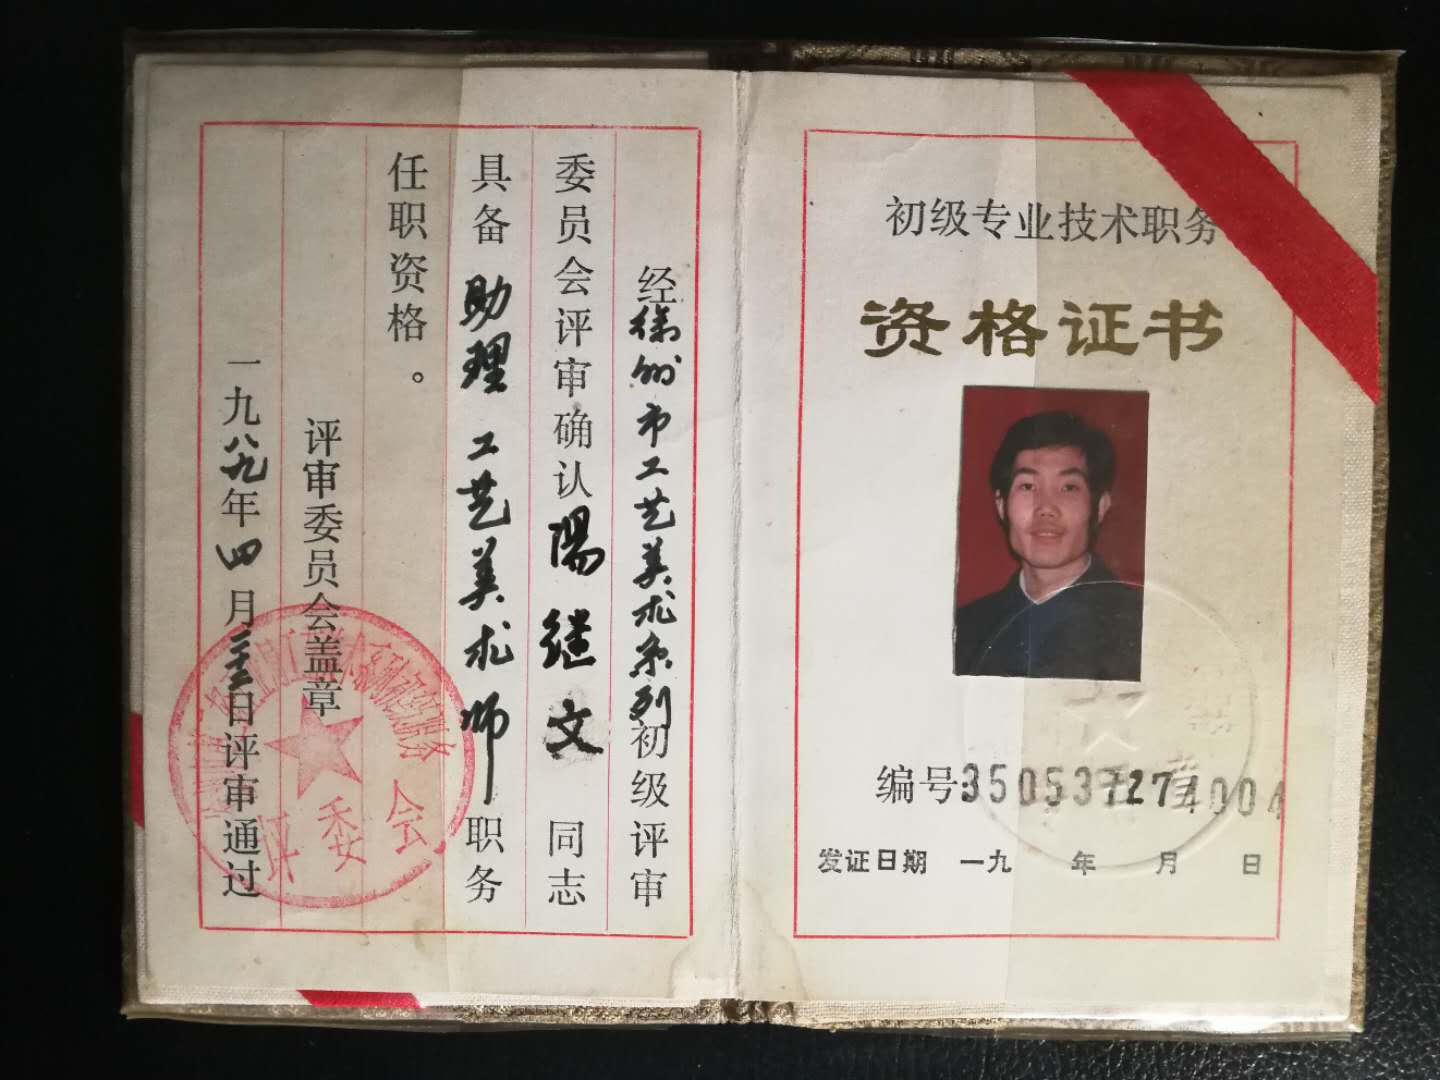 初级专业技术职务
资格证书
编号:350537274004
发证日期 一九 年 月 日
经徐州市工艺美术系列初级评审
委员会评审确认陽继文同志
具备助理工艺美术师职务
任职资格。
评审委员会盖章
一九八九年四月二十二日评审通过
评委会